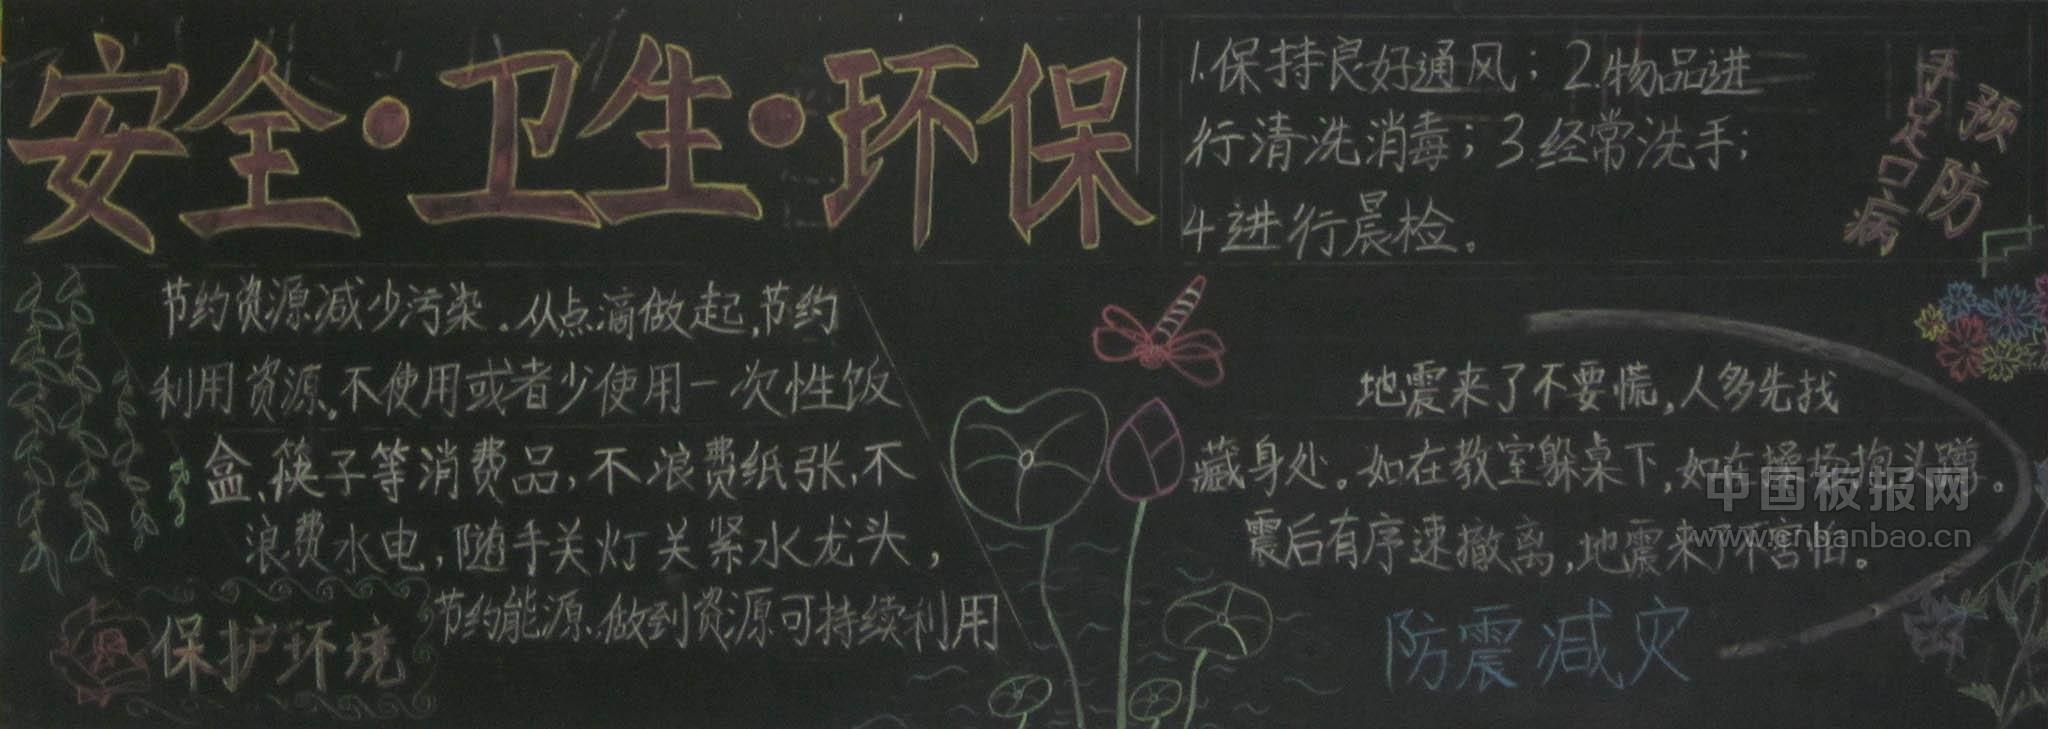 安全·卫生·环保
1.保持良好通风；2.物品进
行清洗消毒；3.经常洗手；
4.进行晨检。
预防
手足口病
节约资源减少污染。从点滴做起，节约
利用资源。不使用或者少使用一次性饭
盒、筷子等消费品，不浪费纸张，不
浪费水电，随手关灯关紧水龙头，
节约能源，做到资源可持续利用
保护环境
地震来了不要慌，人多先找
藏身处。如在教室躲桌下，如在操场抱头蹲。
震后有序速撤离，地震来了不害怕。
防震减灾
中国板报网
www.cnbanbao.cn